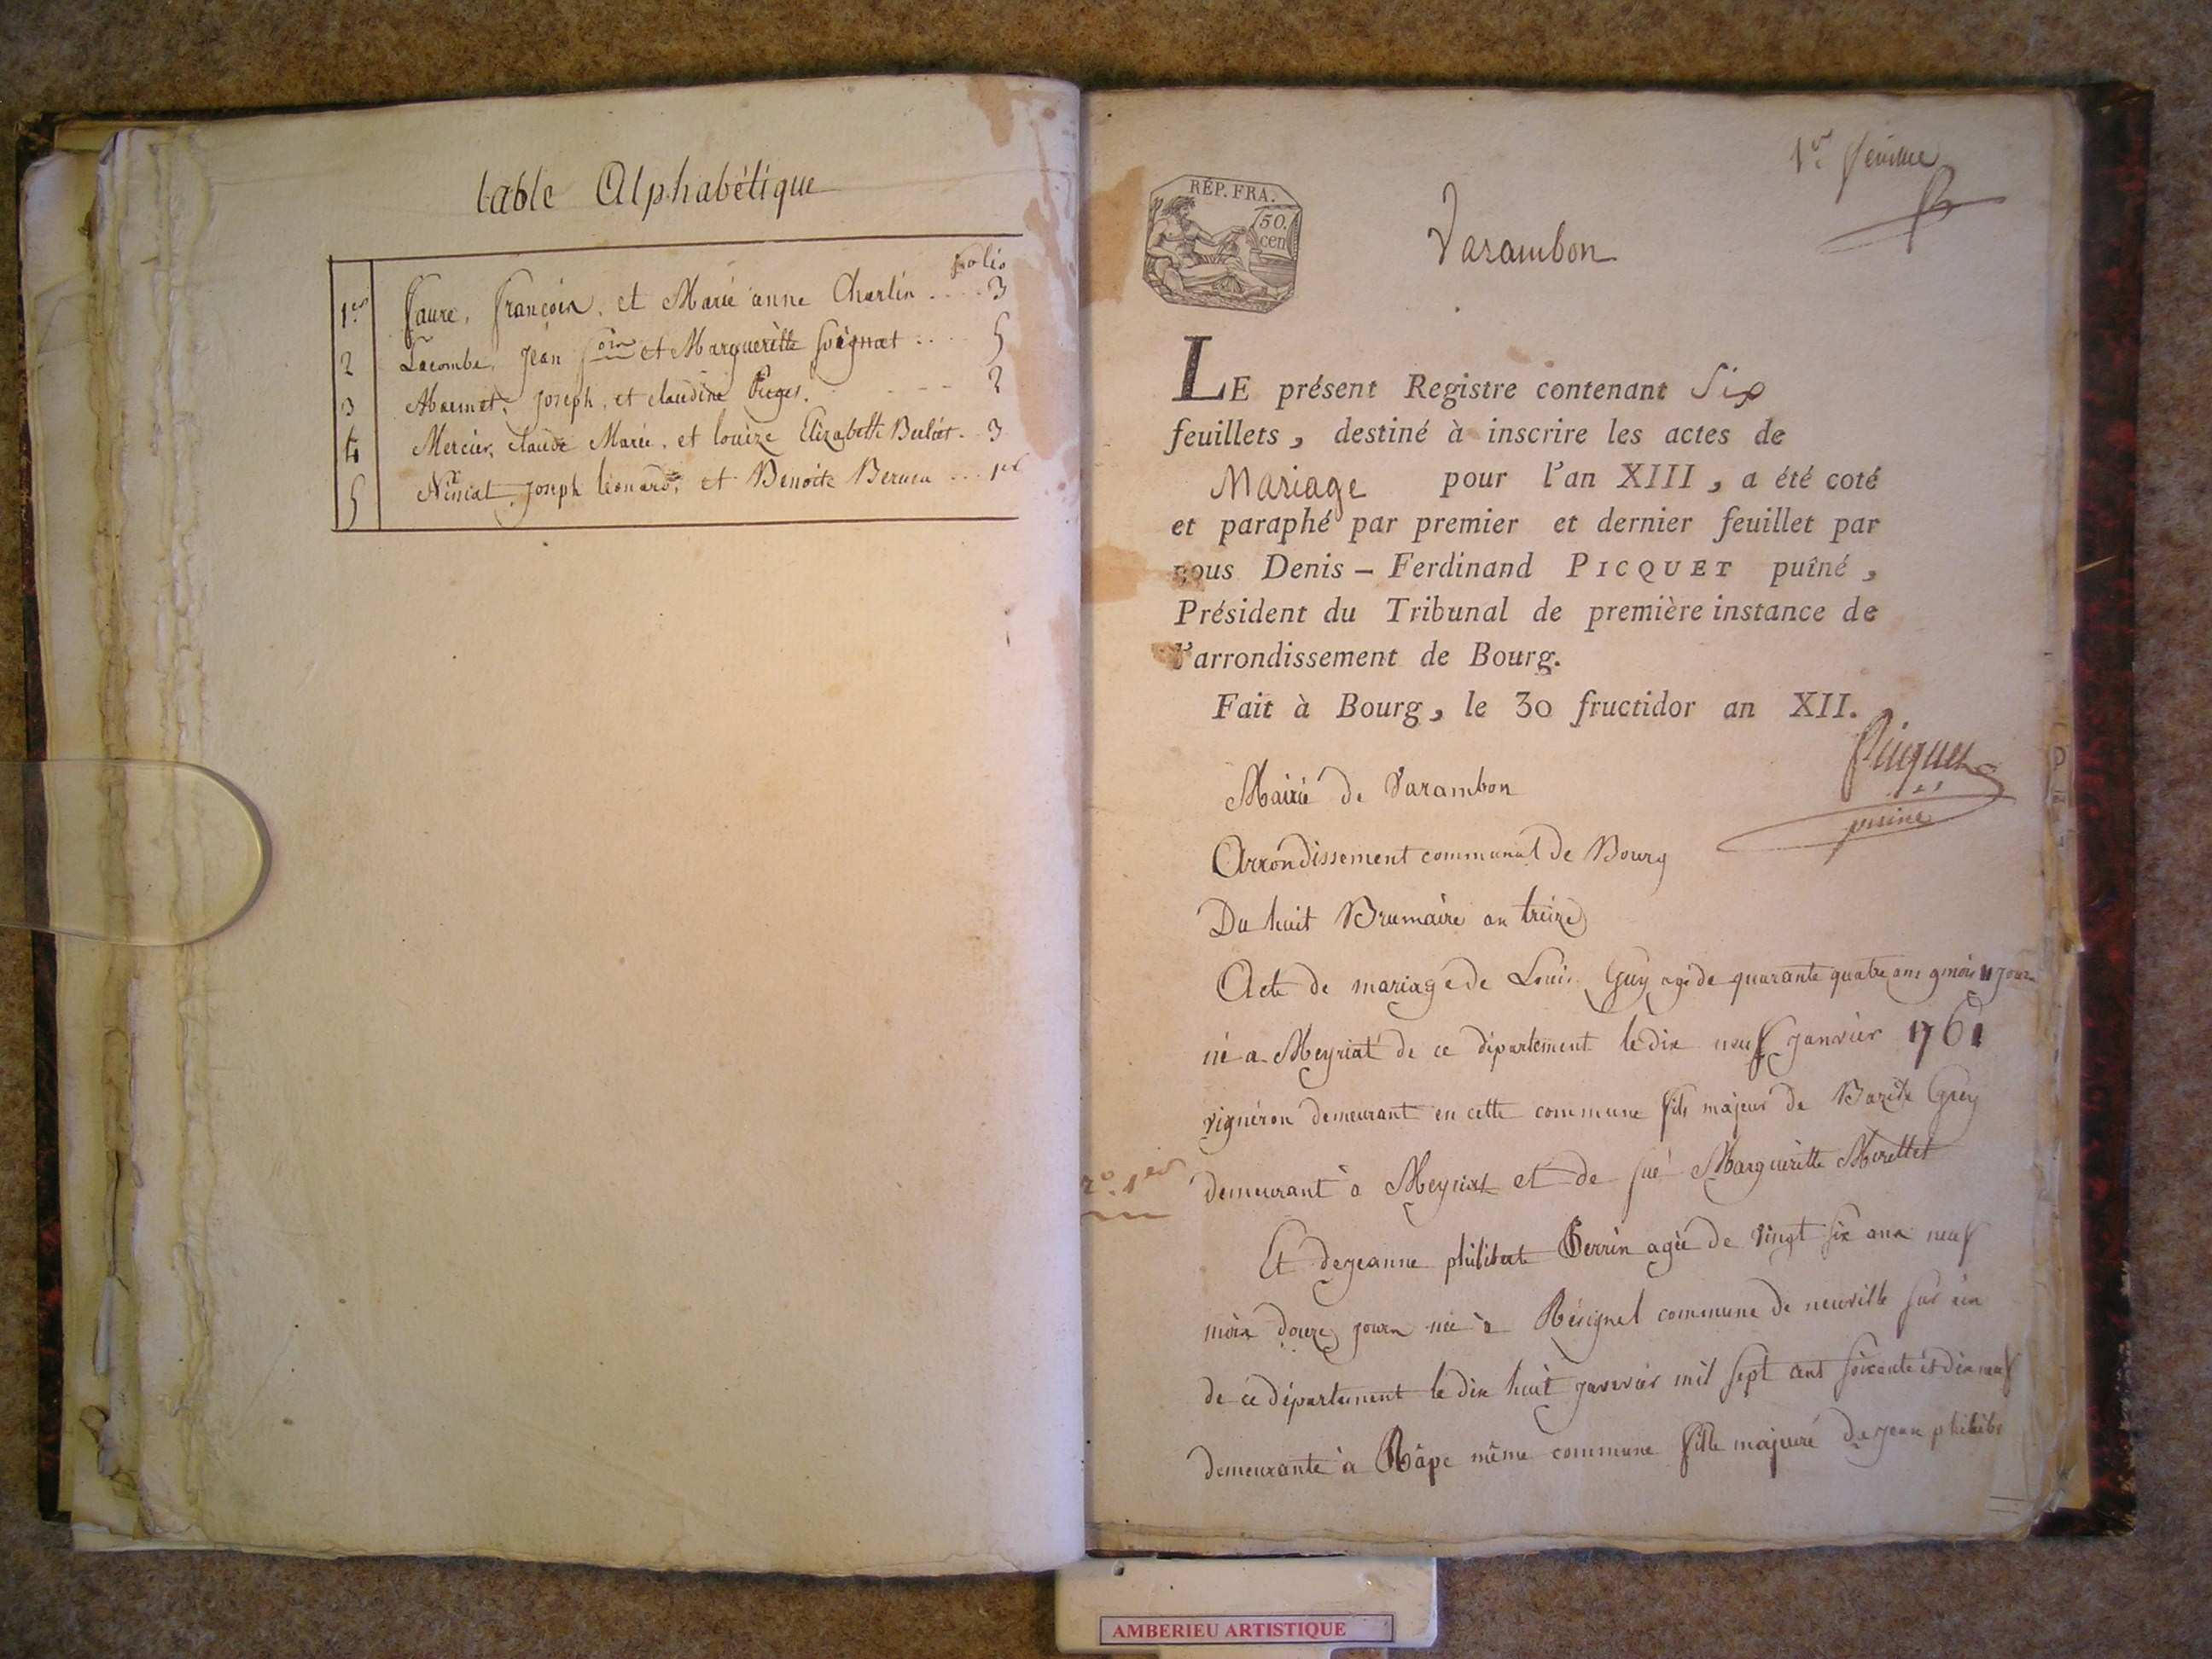 table Alphabétique
folio
1er Faure, françois, et Marie anne Charlin .... 3
2 Lacombe, Jean et Margueritte .... 5
3 Joseph, et claudine .... 2
4 Mercier, claude Marie, et louize Elizabeth . 3
5 Joseph léonard, et Benoite ... 1er
1er feuillet
RÉP. FRA.
50.
cen
Varambon
LE présent Registre contenant Six
feuillets, destiné à inscrire les actes de
Mariage pour l'an XIII, a été coté
et paraphé par premier et dernier feuillet par
nous Denis-Ferdinand PICQUET puîné,
Président du Tribunal de première instance de
l'arrondissement de Bourg.
Fait à Bourg, le 30 fructidor an XII.
Picquet
puiné
Mairie de Varambon
Arrondissement communal de Bourg
Du huit Brumaire an treize
Acte de mariage de Louis Guy agé de quarante quatre ans 9 mois 11 jours
né a Meyriat de ce département le dix neuf janvier 1761
vigneron demeurant en cette commune fils majeur de Guy
n° 1er
demeurant à Meyriat et de fue Margueritte
Et de jeanne philiberte Perrin agée de vingt six ans neuf
mois douze jours née à Résignel commune de neuville sur ain
de ce département le dix huit janvier mil sept cent soixante et dix neuf
demeurante à Râpe même commune fille majeure de jean philibe
AMBERIEU ARTISTIQUE